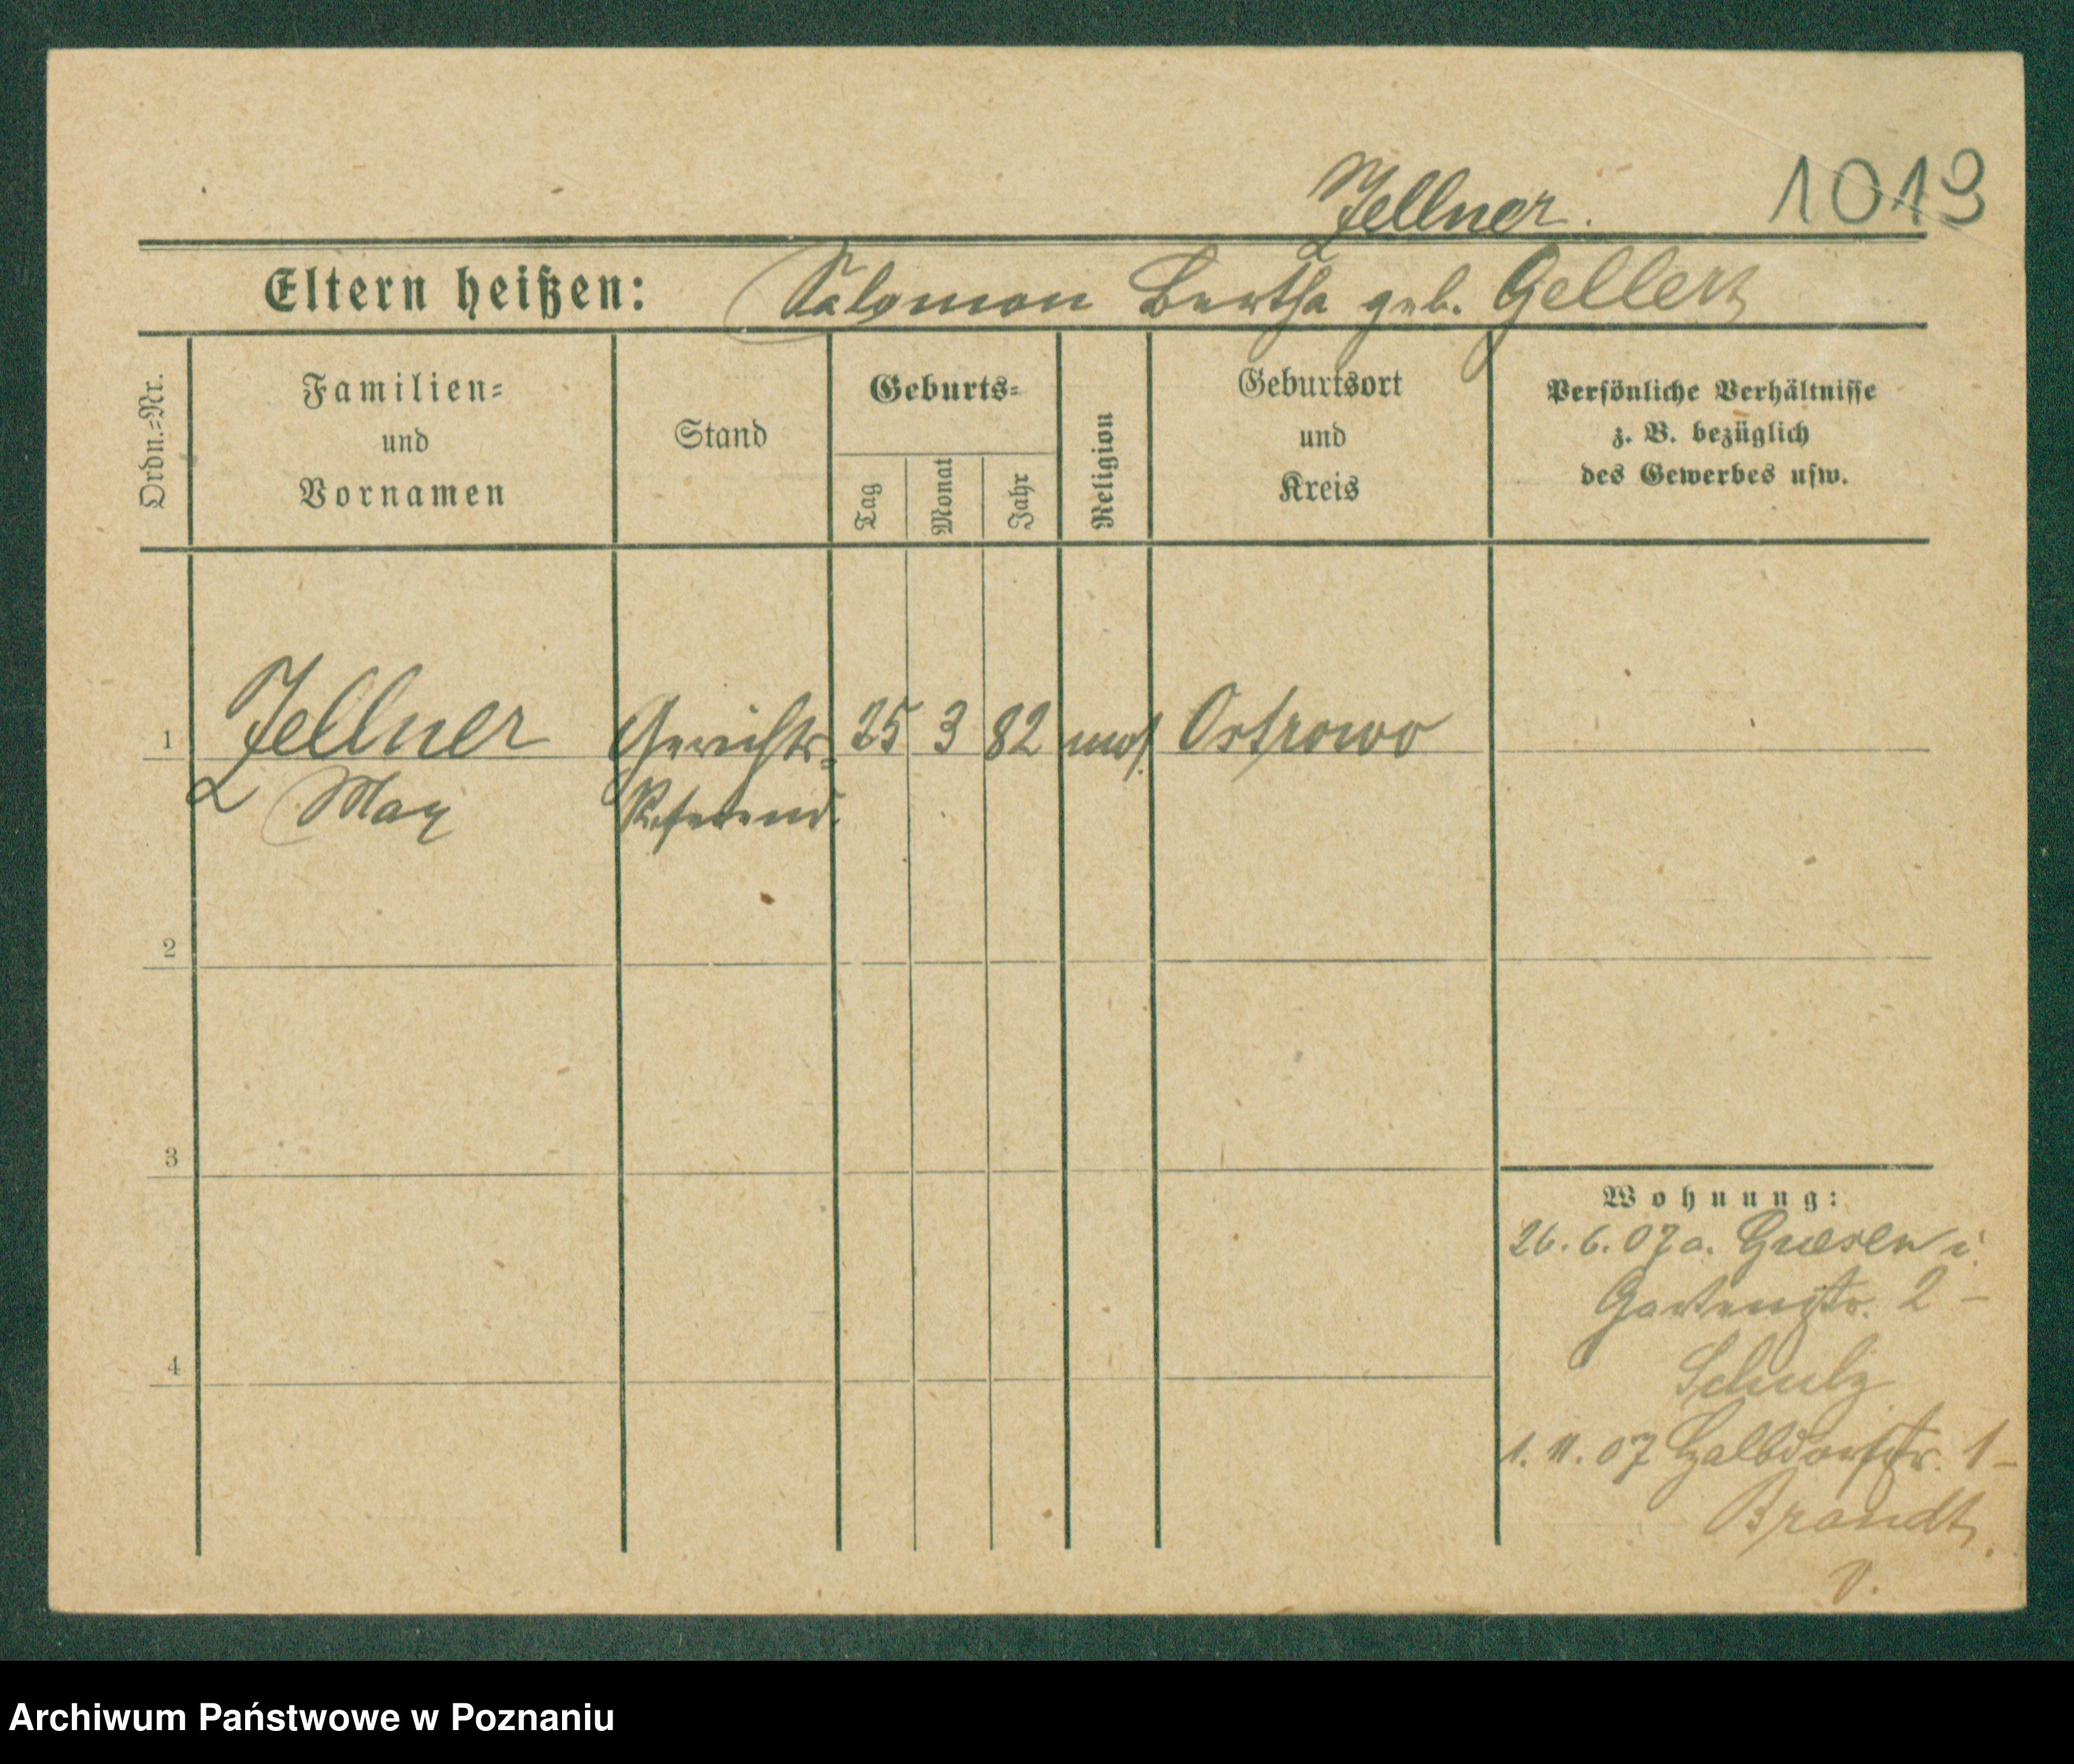 Zellner.
1019
Eltern heißen: Salomon Bertha geb. Gellert
Ordn.=Nr.
Familien=
und
Vornamen
Stand
Geburts=
Tag
Monat
Jahr
Religion
Geburtsort
und
Kreis
Persönliche Verhältnisse
z. B. bezüglich
des Gewerbes usw.
1 Zellner Gerichts= 25 3 82 mos. Ostrowo
Max Referend.
2
3
4
Wohnung:
26. 6. 07 a. Gnesen i
Gartenstr. 2 –
Schulz
1. 11. 07 Halbdorfstr. 1 –
Brandt.
V.
Archiwum Państwowe w Poznaniu